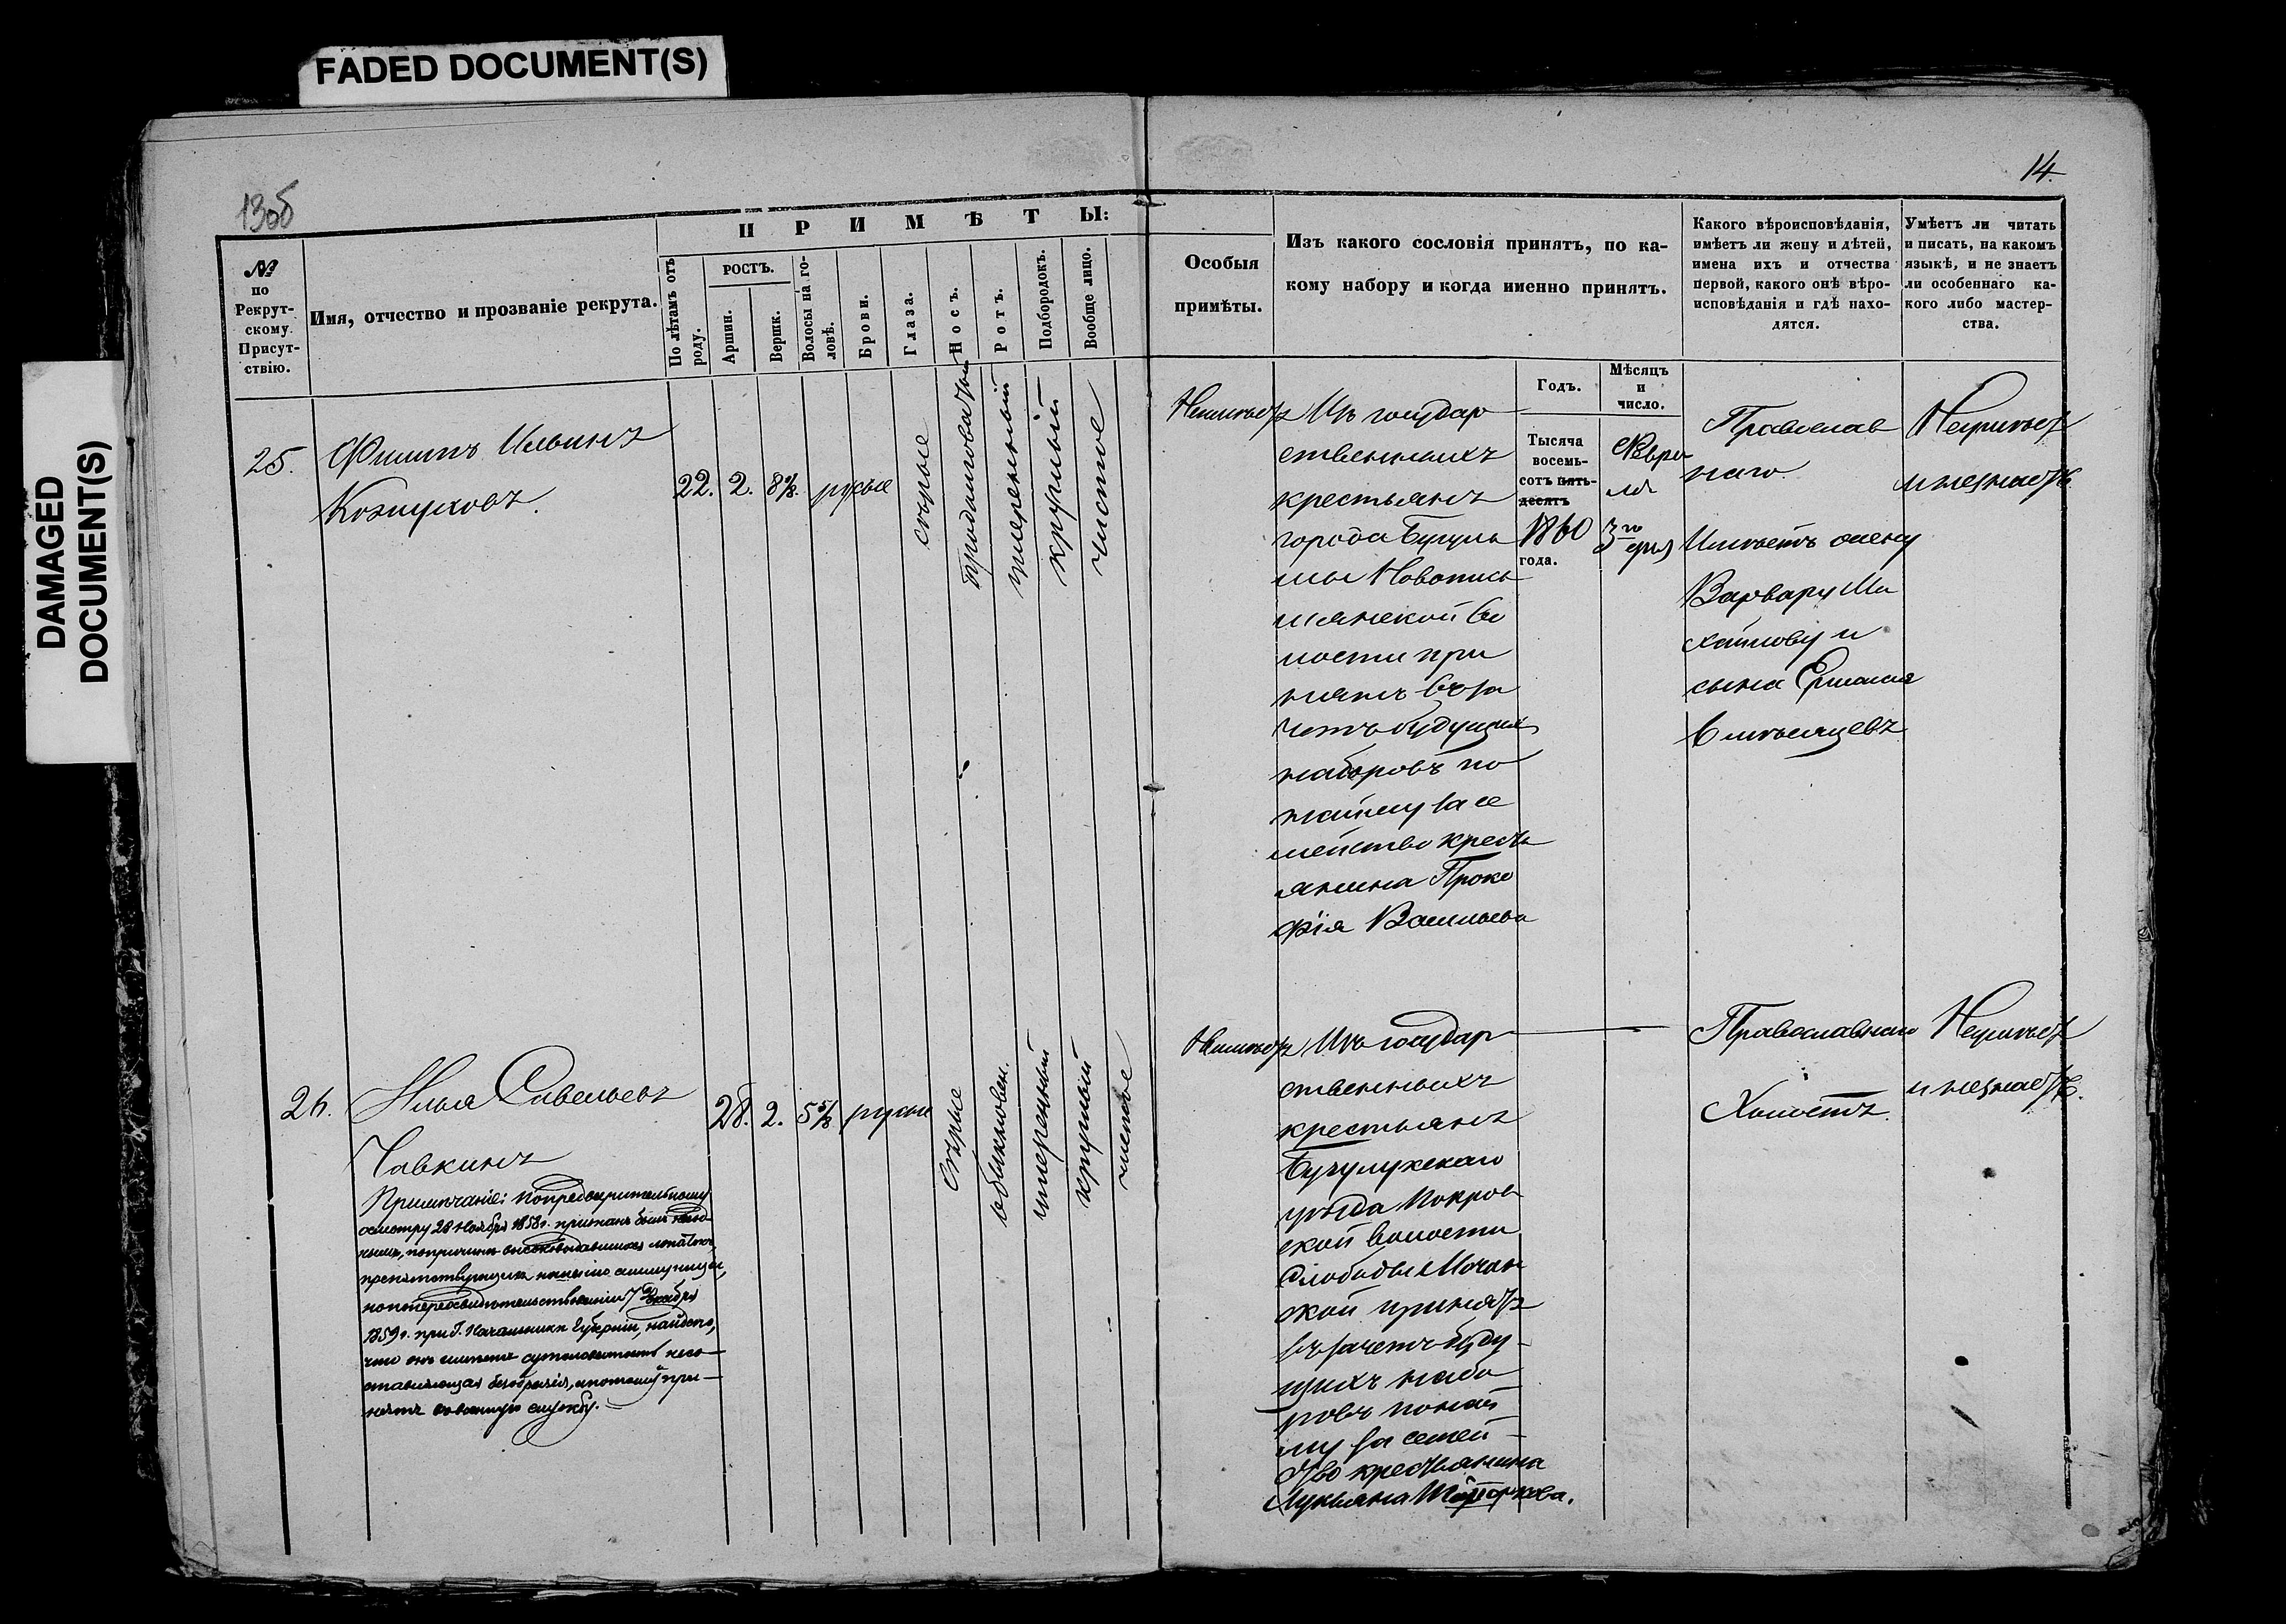 FADED DOCUMENT(S)
DAMAGED
DOCUMENT(S)
13об
14.
№
по
Рекрут-
скому
Присут-
ствію.
Имя, отчество и прозваніе рекрута.
ПРИМѢТЫ:
По лѣтамъ отъ
роду.
РОСТЪ.
Аршин.
Вершк.
Волосы на го-
ловѣ.
Брови.
Глаза.
Носъ.
Ротъ.
Подбородокъ.
Вообще лицо.
Особыя
примѣты.
Изъ какого сословія принятъ, по ка-
кому набору и когда именно принятъ.
Какого вѣроисповѣданія,
имѣетъ ли жену и дѣтей,
имена ихъ и отчества
первой, какого онѣ вѣро-
исповѣданія и гдѣ нахо-
дятся.
Умѣетъ ли читать
и писать, на какомъ
языкѣ, и не знаетъ
ли особеннаго ка-
кого либо мастер-
ства.
Годъ.
Мѣсяцъ
и
число.
25.
Филипъ Ильинъ
Кожуховъ.
22.
2.
8⅞.
русые
сѣрые
продолговатый
умеренный
круглый
чистое
Неимѣетъ
Изъ государ
ственныхъ
крестьянъ
города Бугуль
мы Новопись
мянской во
лости при
нятъ въ за
четъ будущихъ
наборовъ по
найму за се
мейство кресть
янина Проко
фія Васильева
Тысяча
восемь-
сотъ пять-
десятъ
1860
года.
Февра
ля
3го дня
Православ
наго.
Имѣетъ жену
Варвару Ми
хайлову и
сына Ермолая
6 мѣсяцевъ
Неумѣетъ
и незнаетъ.
26.
Илья Савельевъ
Чавкинъ
Примѣчаніе: По предварительному
осмотру 28 Ноября 1858 г. признанъ былъ него-
нымъ, по причинѣ высоковыдавшихся лопатокъ,
препятствующихъ ношенію аммуниціи,
но по переосвидѣтельствованіи 7 Декабря
1859 г. при Г. Начальникѣ Губерніи, найдено,
что онъ имѣетъ сутоловатость несо-
ставляющая безобразія, а потому при-
нятъ въ военную службу.
28.
2.
5⅝
русые
Сѣрые
обыкновен.
умеренный
круглый
чистое
Неимѣетъ
Изъ государ
ственныхъ
крестьянъ
Бузулукскаго
уѣзда Покров
ской волости
Слободы Мочин
ской принятъ
въ зачетъ буду-
щихъ набо
ровъ по най
му за семей-
ство крестьянина
Лукьяна Топоркова.
Православнаго
Холостъ.
Неумѣетъ
и незнаетъ.